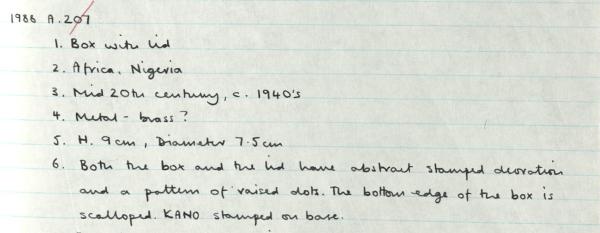 1986 A.207
1. Box with lid
2. Africa, Nigeria
3. Mid 20th century, c. 1940's
4. Metal - brass?
5. H. 9cm, Diameter 7.5cm
6. Both the box and the lid have abstract stamped decoration
and a pattern of raised dots. The bottom edge of the box is
scalloped. KANO stamped on base.